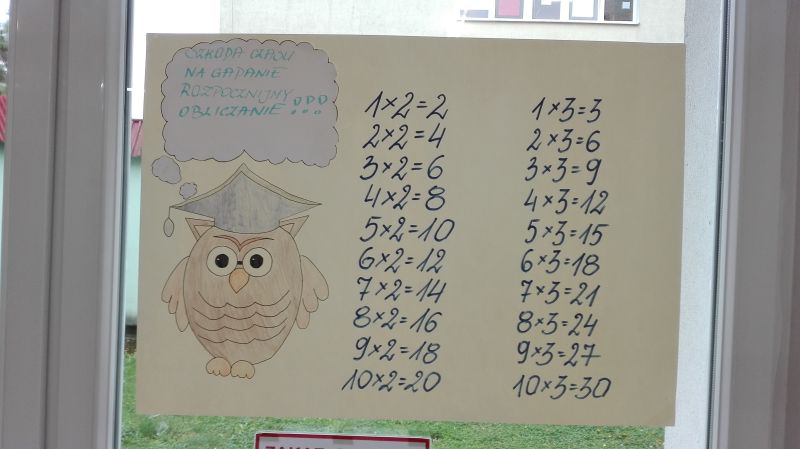 SZKODA CZASU
NA GADANIE
ROZPOCZNIJMY
OBLICZANIE !!!
1×2=2
2×2=4
3×2=6
4×2=8
5×2=10
6×2=12
7×2=14
8×2=16
9×2=18
10×2=20
1×3=3
2×3=6
3×3=9
4×3=12
5×3=15
6×3=18
7×3=21
8×3=24
9×3=27
10×3=30